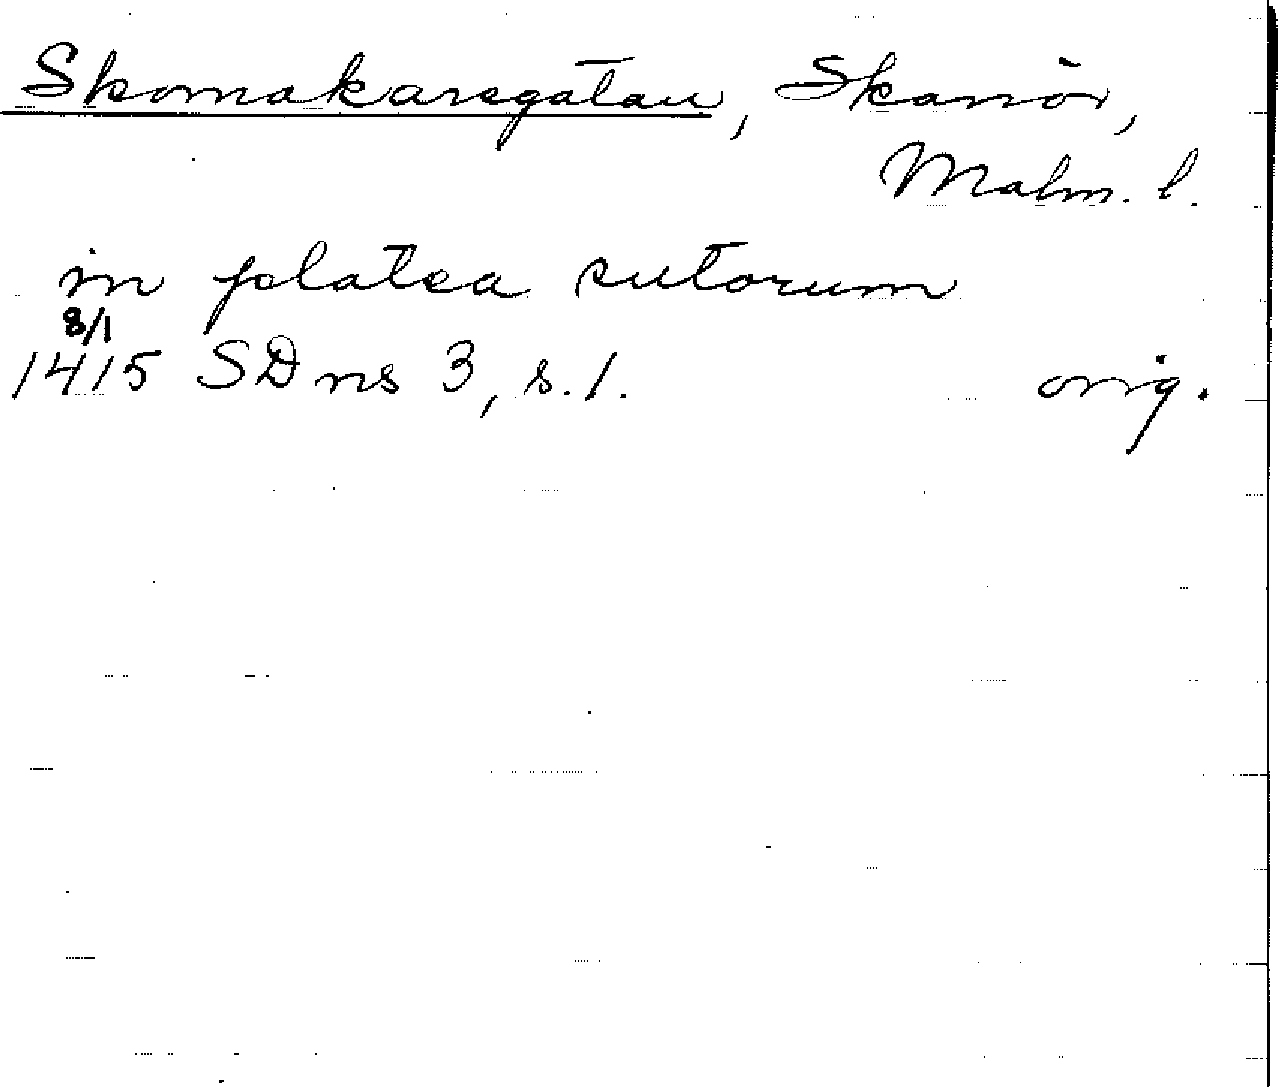 Skomakaregatan, Skanör,
Malm. l.
in platea sutorum
8/1
1415 SD ns 3, s. 1.
orig.